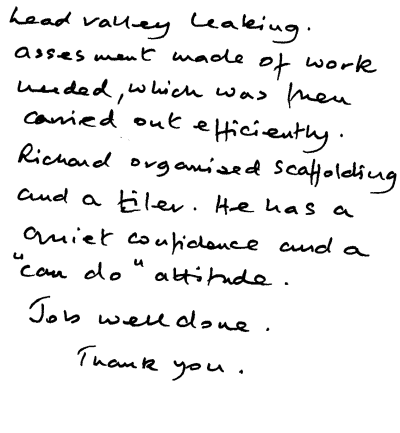 Lead valley leaking.
assesment made of work
needed, which was then
carried out efficiently.
Richard organised scaffolding
and a tiler. He has a
quiet confidence and a
"can do" attitude.
Job well done.
Thank you.